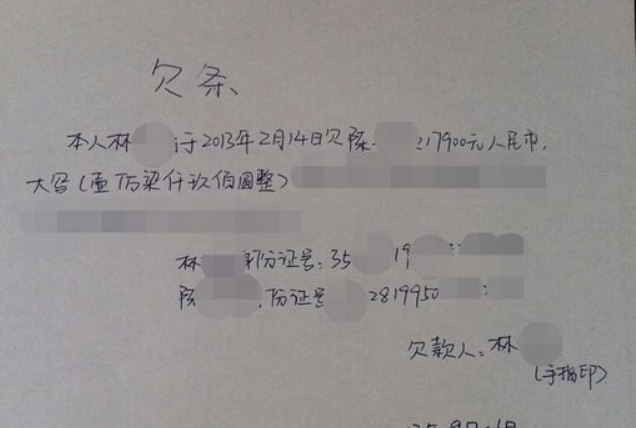 欠条
本人林 于2013年2月14日欠陈 17900元人民币,
大写(壹万柒仟玖佰圆整)
林 身份证号:35 19
陈 份证号 2819950
欠款人:林
(手指印)